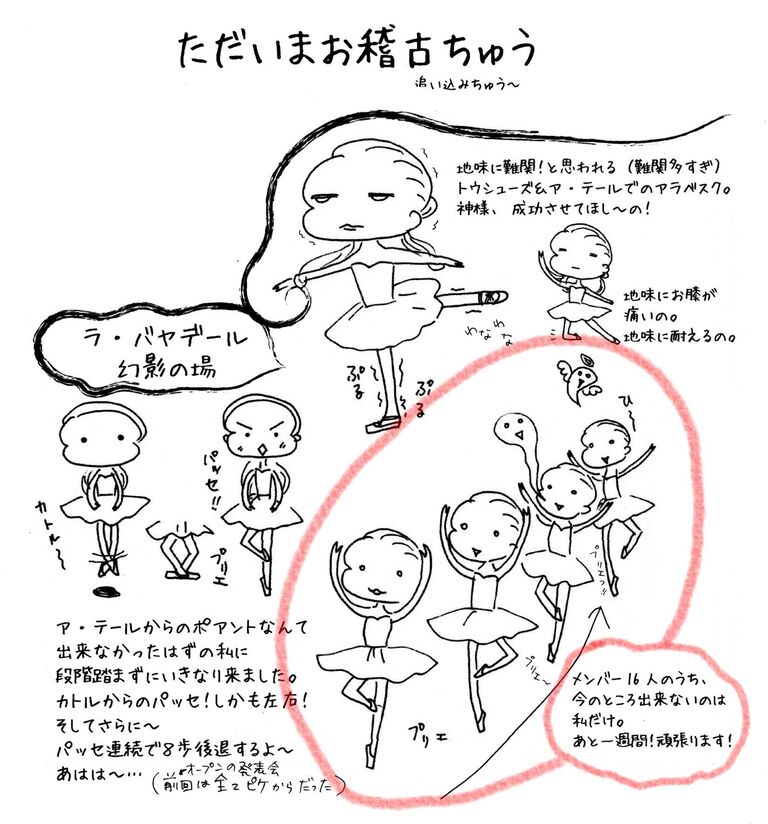 ただいまお稽古ちゅう
追い込みちゅう〜
地味に難関！と思われる（難関多すぎ）
トウシューズ＆ア・テールでのアラベスク。
神様、成功させてほし〜の！
地味にお膝が
痛いの。
地味に耐えるの。
わなわな
ぷる
ぷる
ラ・バヤデール
幻影の場
カトル〜
パッセ!!
プリエ
ひ〜
プリエっ!!
プリエ〜
プリエ
ア・テールからのポアントなんて
出来なかったはずの私に
段階踏まずにいきなり来ました。
カトルからのパッセ！しかも左右！
そしてさらに〜
パッセ連続で8歩後退するよ〜
あはは〜…
オープンの発表会
（前回は全てピケからだった）
メンバー16人のうち、
今のところ出来ないのは
私だけ。
あと一週間！頑張ります！